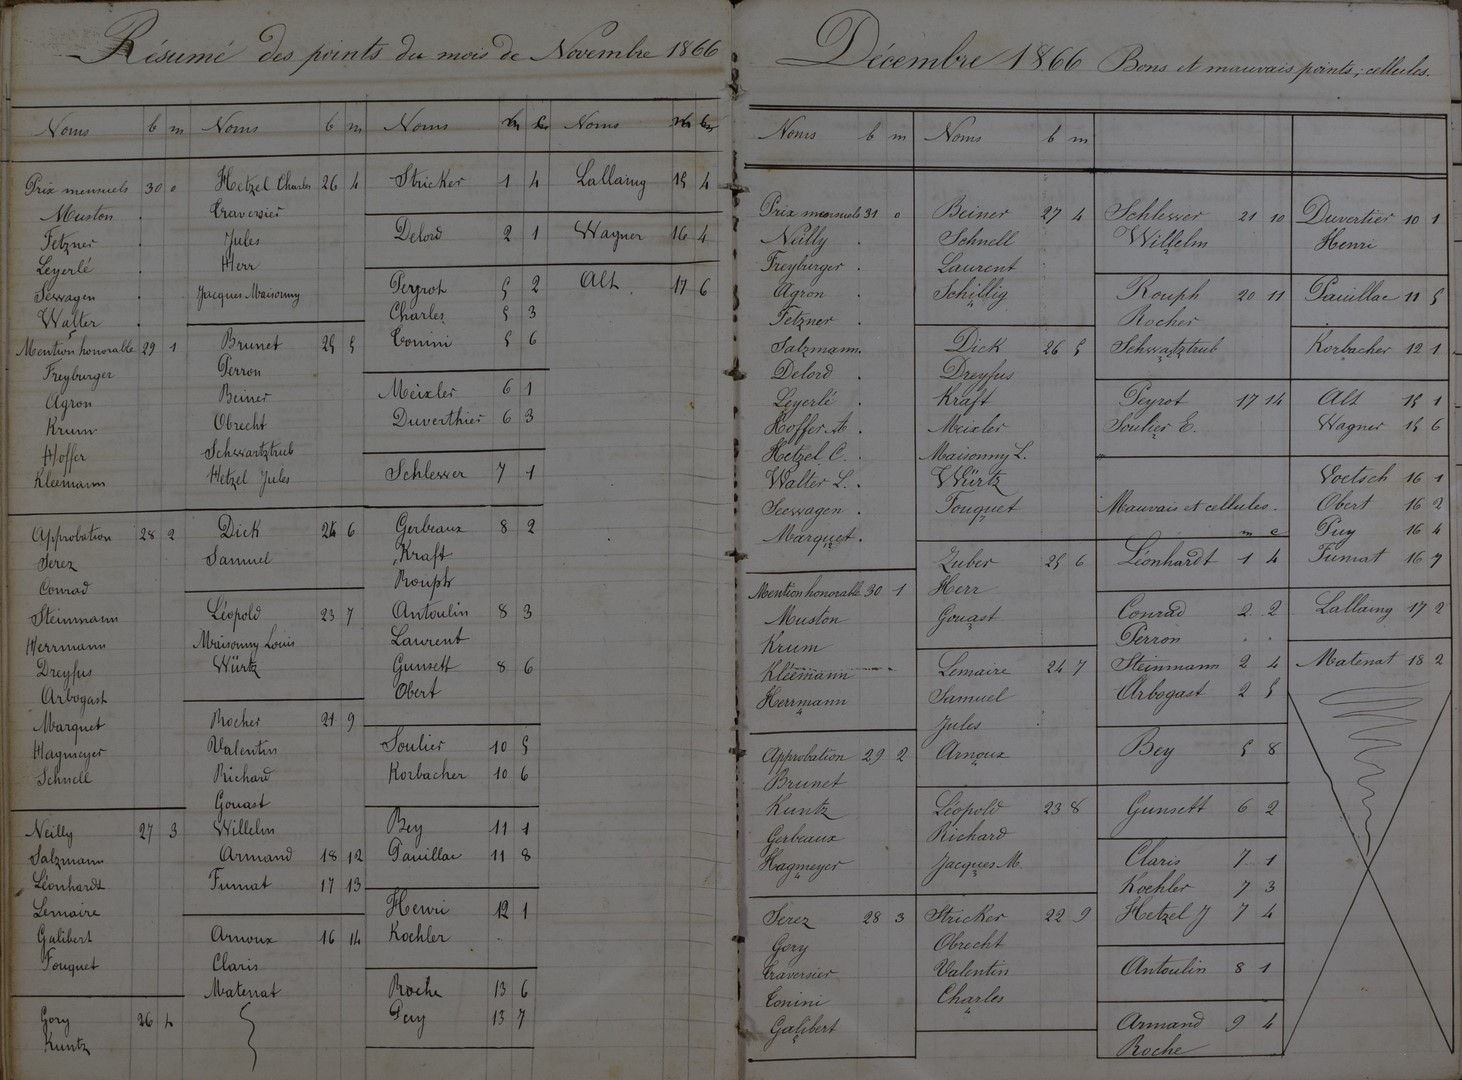 Résumé des points du mois de Novembre 1866
Noms b m
Prix mensuels 30 0
Muston .
Fetzner .
Leyerlé .
Seewagen .
Walter .
5
Mention honorable 29 1
Freyburger
Agron
Krum
Hoffer
Kleemann
Approbation 28 2
Serez
Conrad
Steinmann
Herrmann
Dreyfus
Arbogast
Marquet
Hagmeyer
Schnell
Neilly 27 3
Salzmann
Léonhardt
Lemaire
Galibert
Fouquet
Gory 26 4
Kuntz
Noms b m
Hetzel Charles 26 4
Traversier
Jules
Herr
Jacques Maisonny
Brunet 25 5
Perron
Beiner
Obrecht
Schwartztrub
Hetzel Jules
Dick 24 6
Samuel
Léopold 23 7
Maisonny Louis
Würtz
Rocher 21 9
Valentin
Richard
Gouast
Willelm
Armand 18 12
Fumat 17 13
Arnoux 16 14
Claris
Matenat
Noms
Stricker 1 4
Delord 2 1
Peyrot 5 2
Charles 5 3
Tonini 5 6
Meixler 6 1
Duverthier 6 3
Schlewer 7 1
Gerbeaux 8 2
Kraft
Rouph
Antoulin 8 3
Laurent
Gunsett 8 6
Obert
Soulier 10 5
Korbacher 10 6
Bey 11 1
Pauillac 11 8
Henri 12 1
Kochler .
Roche 13 6
Puy 13 7
Noms
Lallaing 15 4
Wagner 16 4
Alt 17 6
Décembre 1866 Bons et mauvais points; cellules.
Noms b m
Prix mensuels 31 0
Neilly .
Freyburger .
Agron .
Fetzner .
Salzmann .
Delord .
Leyerlé .
Hoffer A .
Hetzel C. .
Walter L. .
Seewagen .
Marquet .
12
Mention honorable 30 1
Muston
Krum
Kléemann
Herrmann
4
Approbation 29 2
Brunet
Kuntz
Gerbeaux
Hagmeyer
4
Serez 28 3
Gory
Traversier
Tonini
Galibert
5
Noms b m
Beiner 27 4
Schnell
Laurent
Schillig
4
Dick 26 5
Dreyfus
Kraft
Meixler
Maisonny L.
Würtz
Fouquet
7
Zuber 25 6
Herr
Gouast
3
Lemaire 24 7
Samuel
Jules
Arnoux
4
Léopold 23 8
Richard
Jacques M.
3
Stricker 22 9
Obrecht
Valentin
Charles
4
Schlewer 21 10
Willelm
2
Rouph 20 11
Rocher
Schwartztrub
3
Peyrot 17 14
Soulier E.
2
Mauvais et cellules.
m c
Léonhardt 1 4
Conrad 2 2
Perron . .
Steinmann 2 4
Arbogast 2 5
Bey 5 8
Gunsett 6 2
Claris 7 1
Kochler 7 3
Hetzel J 7 4
Antoulin 8 1
Armand 9 4
Roche
Duvertier 10 1
Henri
Pauillac 11 5
Korbacher 12 1
Alt 15 1
Wagner 15 6
Voetsch 16 1
Obert 16 2
Puy 16 4
Fumat 16 7
Lallaing 17 2
Matenat 18 2